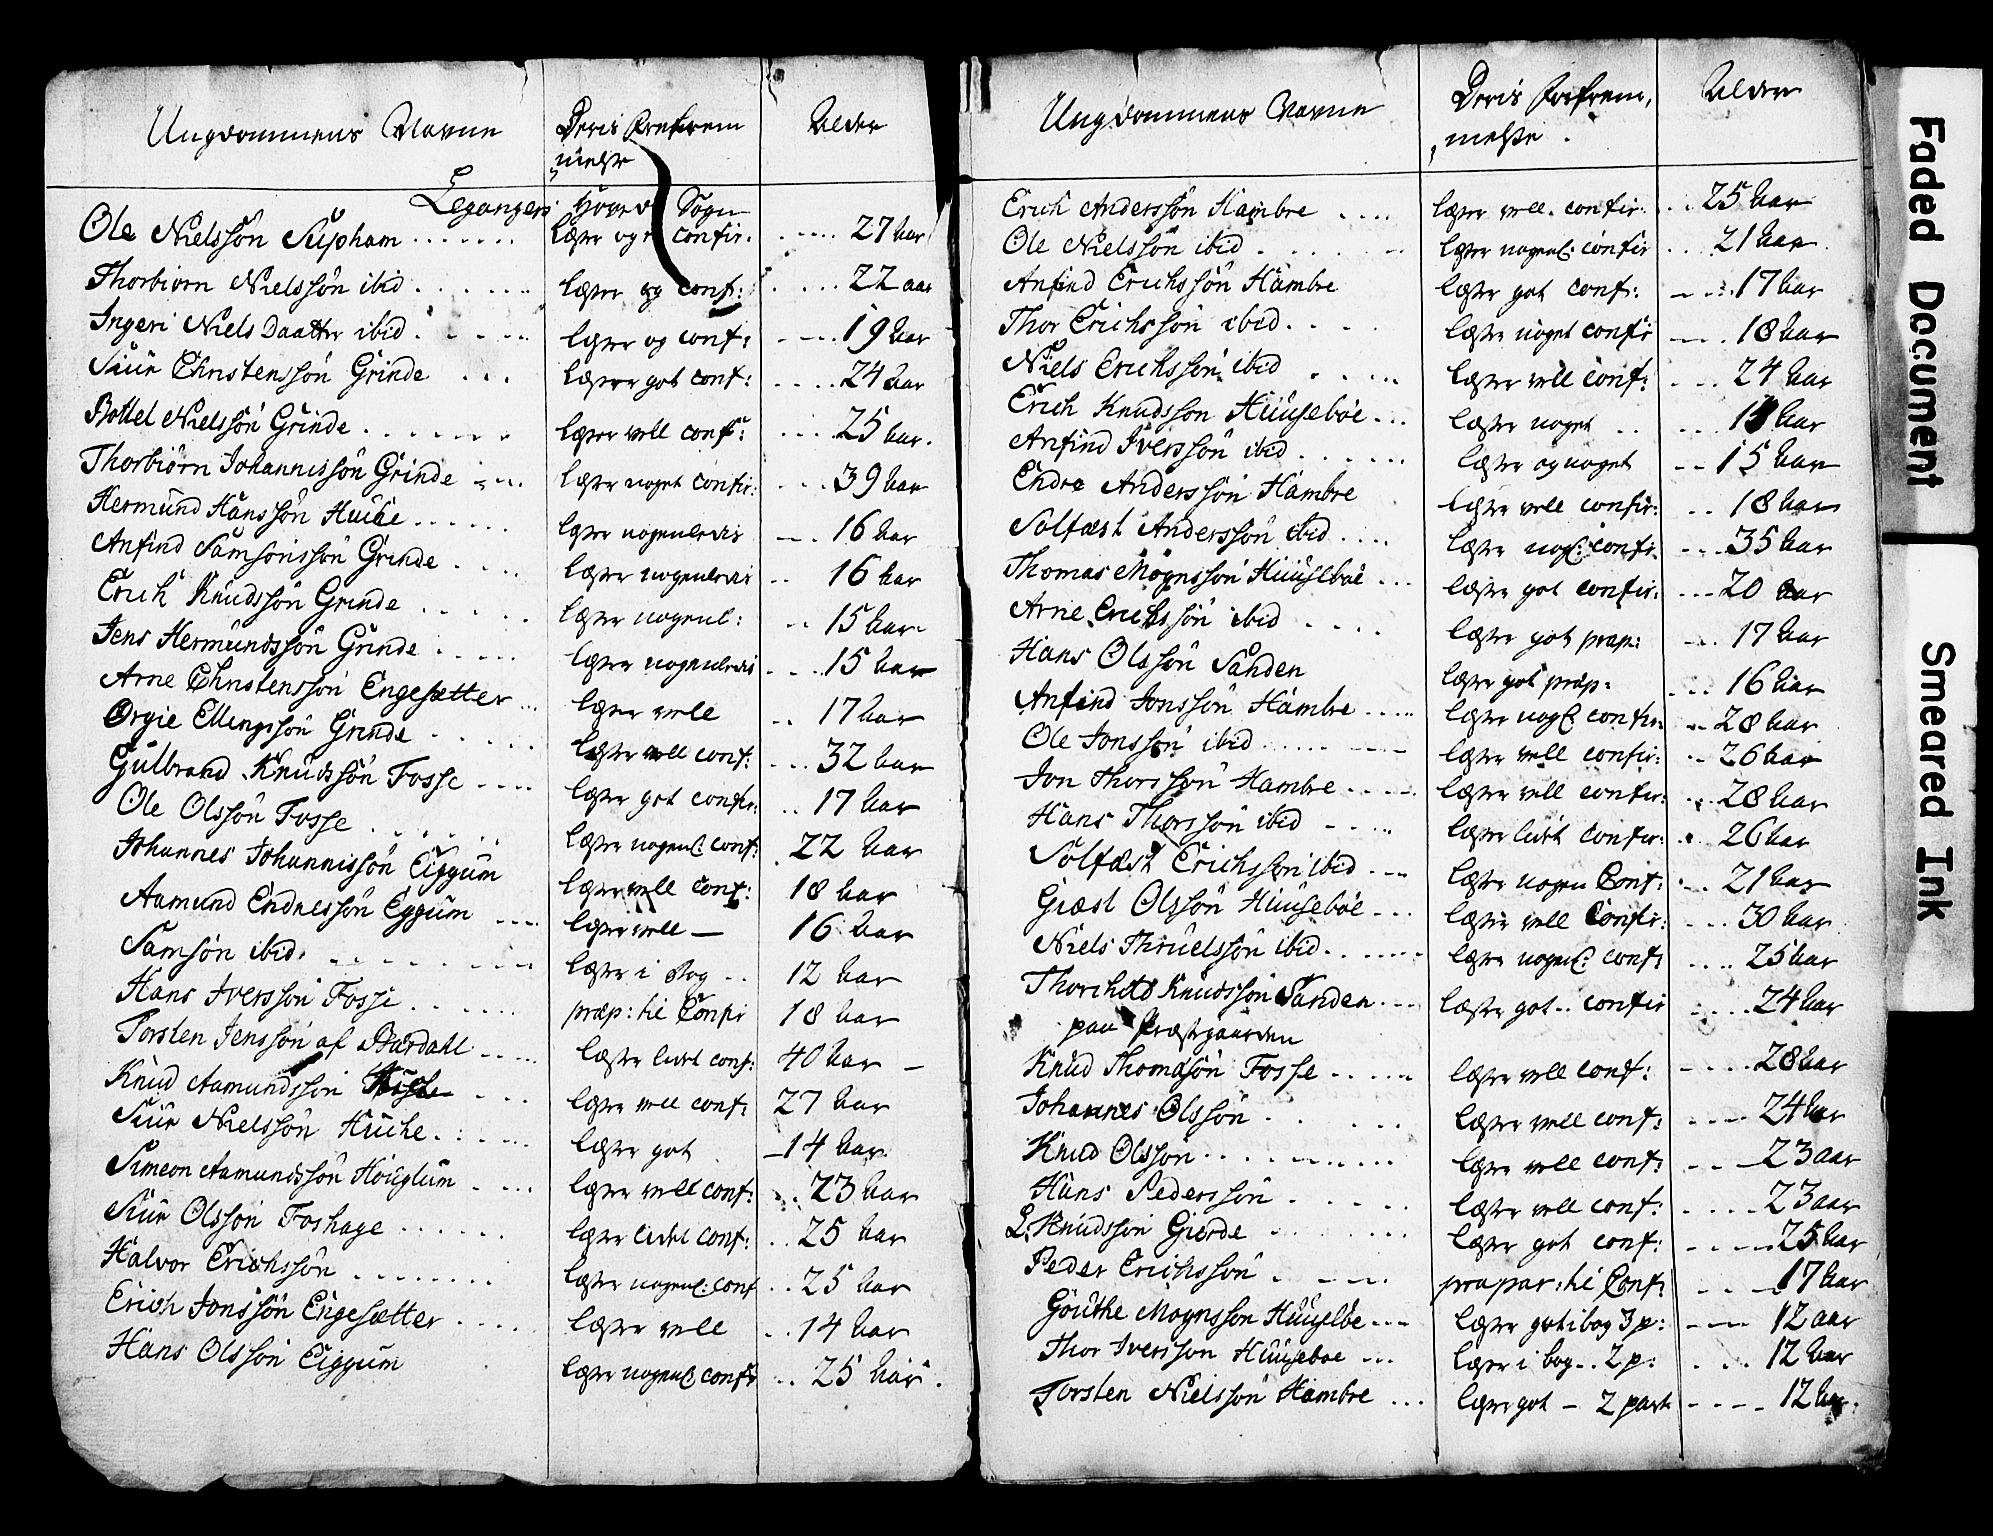 Ungdommens Navne Deris Forfrem Alder
melse
Leganger Hoved Sogn
Ole Nielssön Supham læser og confir. 27 Aar
Thorbiörn Nielssön ibid læser og conf: 22 aar
Ingeri Niels Daatter ibid læser og conf: 19 Aar
Siur Christenssön Grinde læser got conf: 24 Aar
Bottel Nielssön Grinde læser vell conf: 25 Aar.
Thorbiörn Johannissön Grinde læser noget confir: 39 Aar
Hermund Hanssön læser nogenledis 16 Aar
Anfind Samsonssön Grinde læser nogenledis 16 Aar
Erich Knudssön Grinde læser nogenl: 15 Aar
Jens Hermundssön Grinde læser nogenledis 15 Aar
Arne Christenssön Engesætter læser vell 17 Aar
Orgie Ellingssön Grinde læser vell conf: 32 Aar
Gulbrand Knudssön Fosse læser got confir: 17 Aar
Ole Olssön Fosse læser nogenl: conf: 22 Aar
Johannes Johannissön Eiggum læser vell conf: 18 Aar
Aamund Endressön Eggum læser vell 16 Aar
Samson ibid læser i Bog 12 Aar
Hans Iverssön Fosse præp: til Confir 18 Aar
Torsten Jenssön af Bardahl læser lidet conf: 40 Aar
Knud Aamundssön læser vell conf: 27 Aar
Siur Nielssön Huche læser got 14 Aar
Simeon Aamundssön Houglum læser vell conf: 23 Aar
Siur Olssön Foshage læser lidet conf: 25 Aar
Halvor Erichssön læser nogenl: conf 25 Aar
Erich Jonssön Engesætter læser vell 14 Aar
Hans Olssön Eiggum læser nogenl: conf: 25 Aar.
Ungdommens Navne Deris Forfrem Alder
melse.
Erich Anderssön Hambre læser vell. confir. 25 Aar
Ole Nielssön ibid læser nogenl: confir 21 Aar
Anfind Erichssön Hambre læser got conf: 17 Aar
Thor Erichssön ibid læser noget confir 18 Aar
Niels Erichssön ibid læser vell conf: 24 Aar
Erich Knudssön Huuseböe læser noget Aar
Anfind Iverssön ibid læser og noget 15 Aar
Endre Anderssön Hambre læser vell confir: 18 Aar
Solfæst Anderssön ibid læser nogl: confir. 35 Aar
Thomas Mognssön Huuseböe læser got confir: 20 Aar
Arne Erichssön ibid læser got præp: 17 Aar
Hans Olssön Sanden læser got præp: 16 Aar
Anfind Jonssön Hambre læser nogl: confir: 28 Aar
Ole Jonssön ibid læser vell confir: 26 Aar
Jon Thorssön Hambre læser vell confir: 28 Aar
Hans Thorssön ibid læser lidet confir: 26 Aar
Solfæst Erichssön ibid læser nogen Conf: 21 Aar
Giæst Olssön Huuseböe læser vell Confir: 30 Aar
Niels Thruelssön ibid læser nogenl: conf: 25 Aar
Thorchild Knudssön Sanden læser got confir 24 Aar
paa Præstgaarden
Knud Thomæsön Fosse læser vell conf: 28 Aar
Johannes Olssön læser vell conf: 24 Aar
Knud Olssön læser vell conf: 23 aar
Hans Pederssön læser vell conf: 23 aar
L. Knudssön Gierde læser got conf: 25 Aar
Peder Erichssön præpar: til Conf: 17 Aar
Gouthe Mognssön Huuseböe læser got i bog 3 p: 12 aar
Thor Iverssön Huuseboe læser i bog 2 p: 12 Aar
Torsten Nielssön Hambre læser got - 2 part 12 Aar.
Faded Document
Smeared Ink